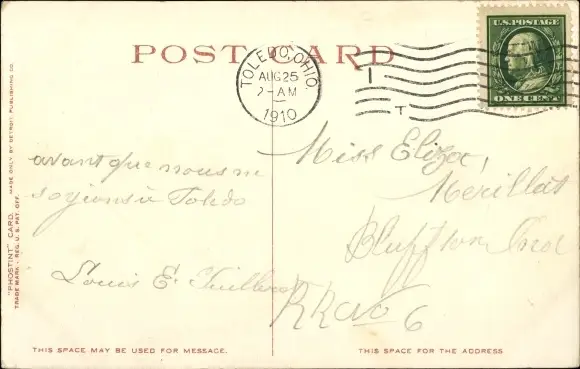 POST CARD
U.S. POSTAGE
ONE CENT
TOLEDO, OHIO.
AUG 25
2-AM
1910
I
T
"PHOSTINT" CARD. MADE ONLY BY DETROIT PUBLISHING CO.
TRADE MARK - REG. U.S. PAT. OFF.
avant que nous ne
soyions à Toledo
Louis E.
Miss Eliza
Merillat
Bluffton Ind
RR No 6
THIS SPACE MAY BE USED FOR MESSAGE.
THIS SPACE FOR THE ADDRESS